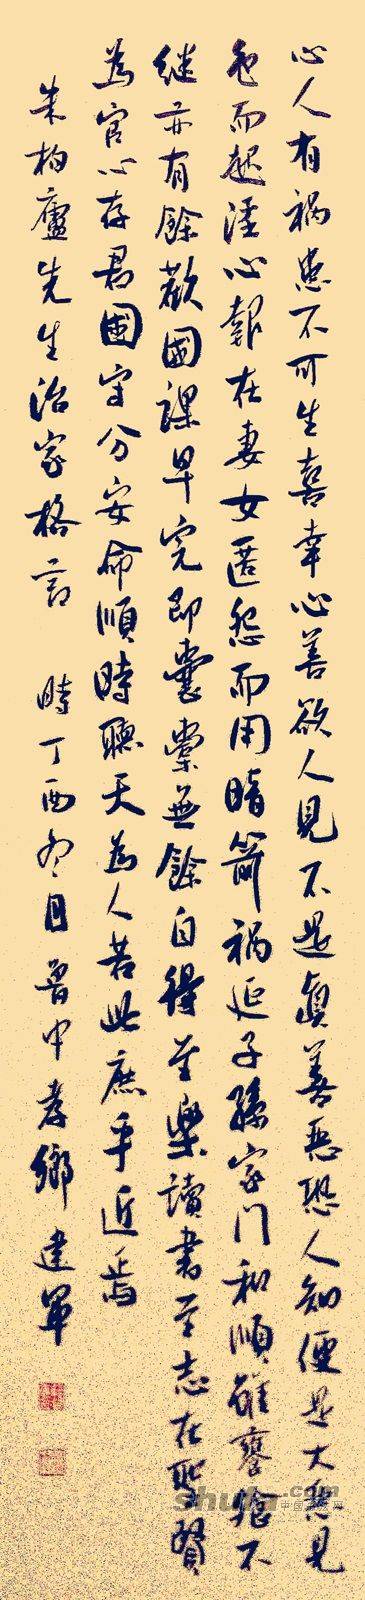 心人有祸患不可生喜幸心善欲人見不是真善惡恐人知便是大惡見
色而起淫心報在妻女匿怨而用暗箭祸延子孫家門和順雖饔飧不
継亦有餘歡國課早完即囊橐無餘自得至樂讀書至志在聖賢
為官心存君國守分安命順時聽天為人若此庶乎近焉
朱柏廬先生治家格言 時丁酉冬月魯中孝鄉建軍
shufa.com